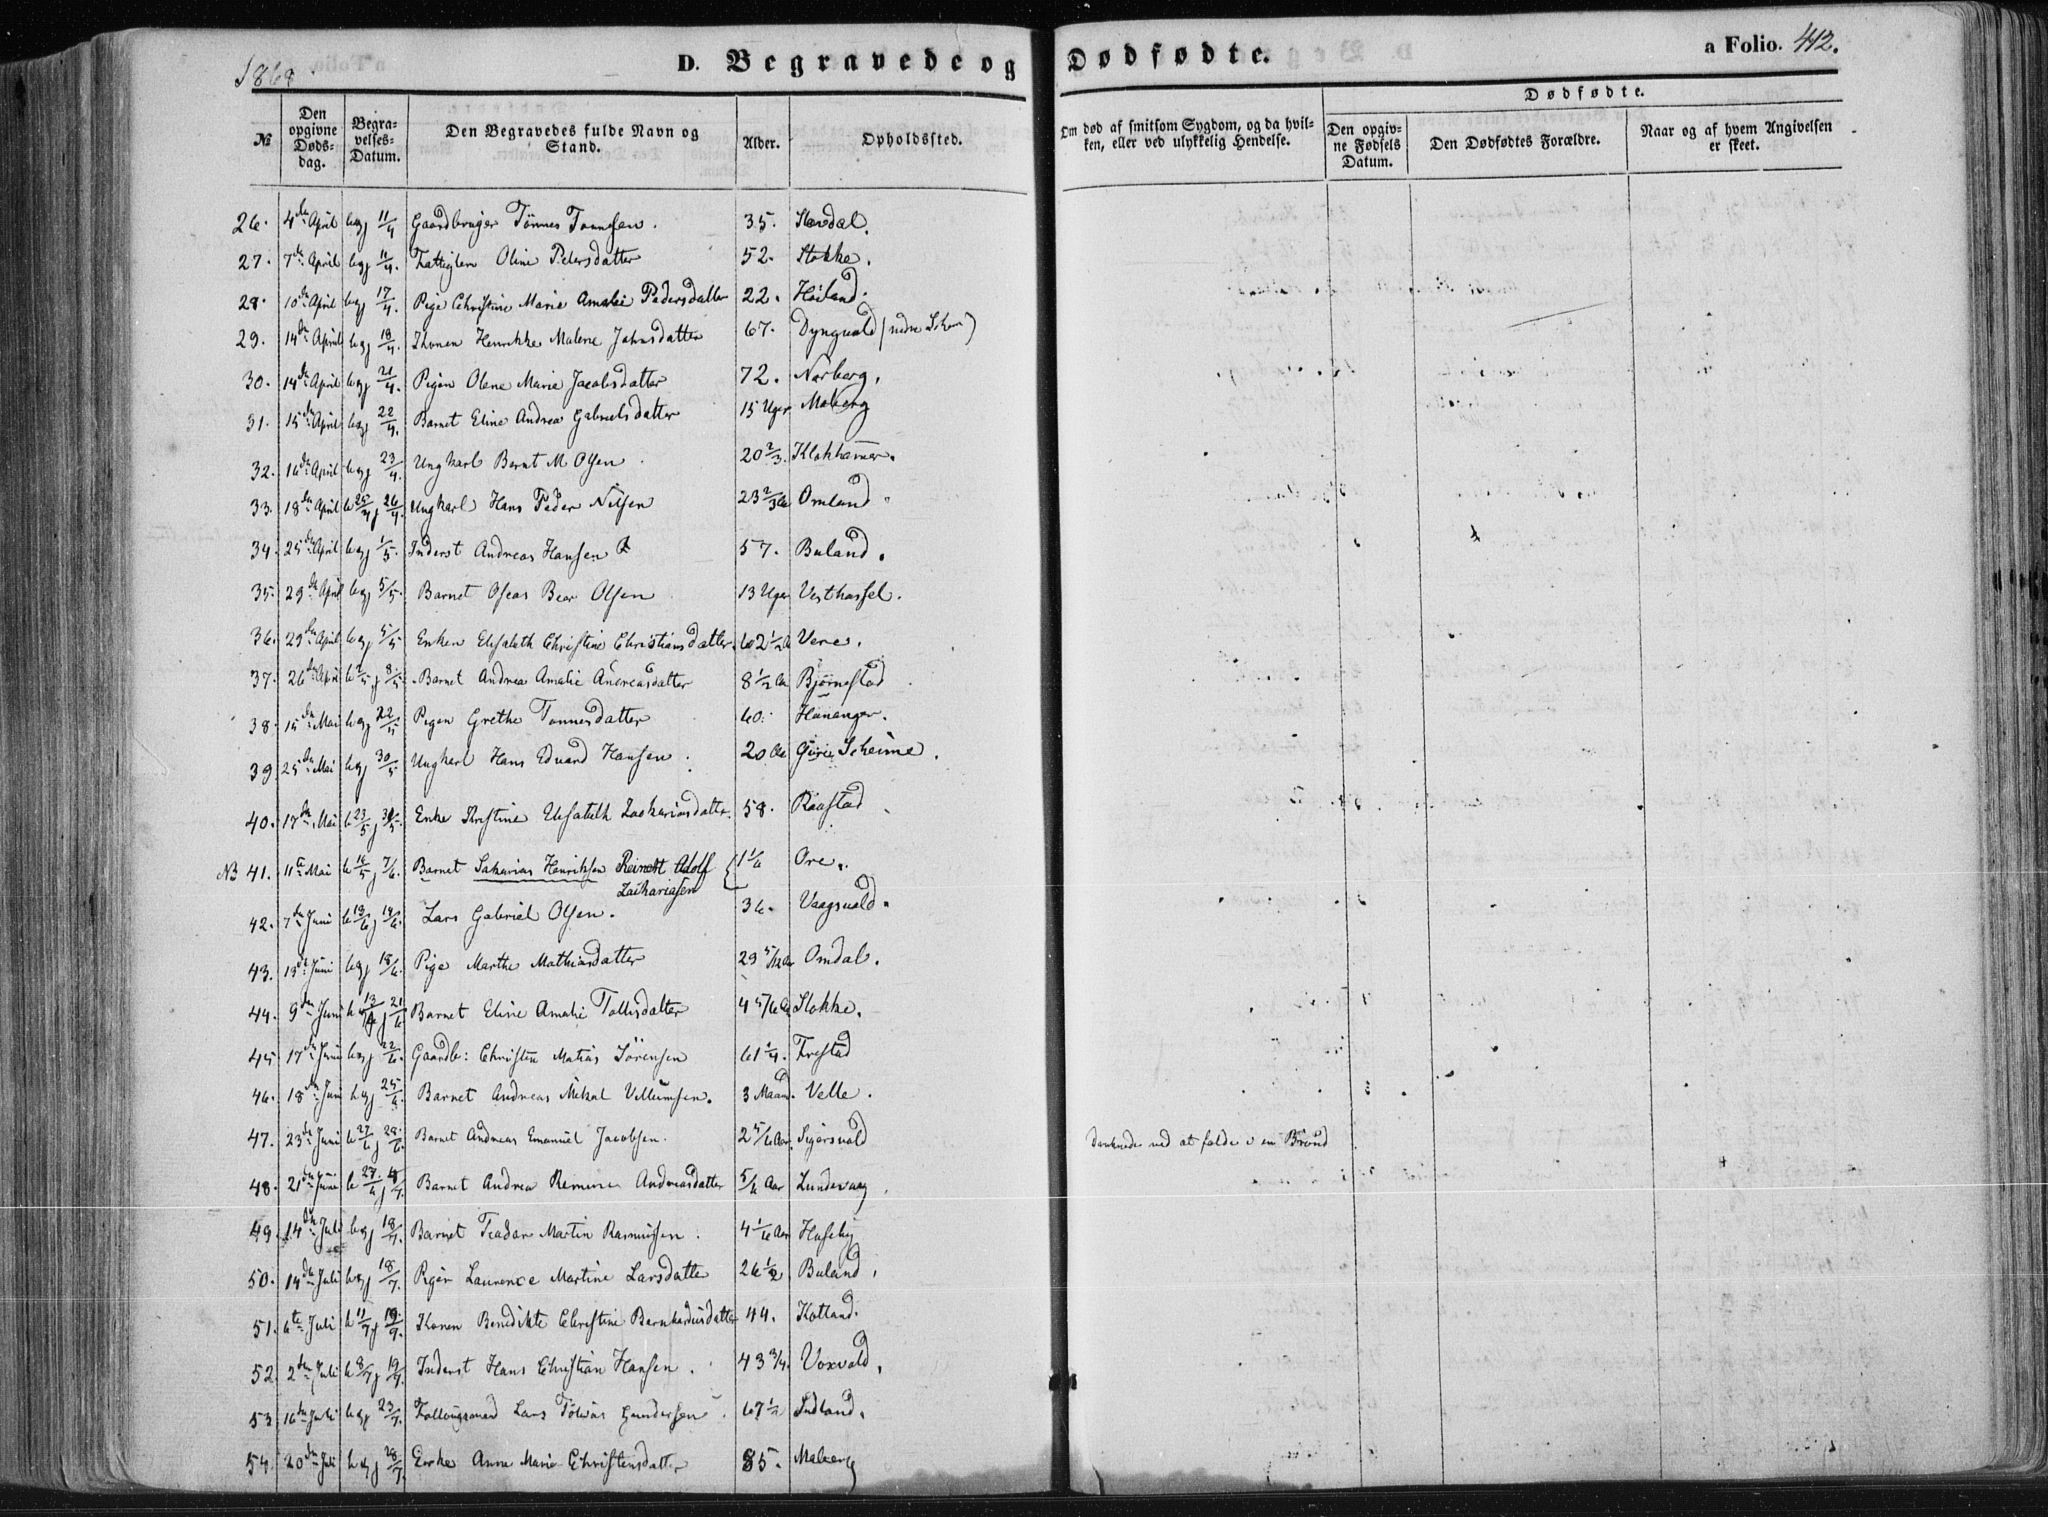 1868
D. Begravede og Dødfødte.
a Folio. 412.
Dødfødte.
№ Den opgivne Dødsdag. Begravelses-Datum. Den Begravedes fulde Navn og Stand. Alder. Opholdssted. Om død af smitsom Sygdom, og da hvilken, eller ved ulykkelig Hendelse. Den opgivne Fødsels Datum. Den Dødfødtes Forældre. Naar og af hvem Angivelsen er skeet.
26. 4de April b og j 11/4 Gaardbruger Tönnes Tonnesen. 35.
27. 7de April b og j 11/4. Fattiglem Oline Pedersdatter 52. Stokke.
28. 10de April b og j 17/4. Pige Christine Marie Amalie Pedersdatter 22. Höiland.
29. 14de April b og j 18/4. Konen Henrikke Malene Jahnsdatter 67. Dyngvold (nedre Skeim)
30. 14de April b og j 21/4. Pigen Olene Marie Jacobsdatter 72. Norberg.
31. 15de April b og j 22/4. Barnet Eline Andrea Gabrielsdatter 15 Uger Maberg
32. 16de April b og j 23/4. Ungkarl Bernt M Olsen 20 2/3. Klokhammer.
33. 18de April b 25/4 j 26/4. Ungkarl Hans Peder Nilsen 23 2/3 Aa Omland
34. 25de April b og j 1/5. Inderst Andreas Hansen 57. Buland.
35. 29de April b og j 5/5. Barnet Oseas Bear Olsen 13 Uger Vesthassel.
36. 29de April b og j 5/5 Enken Elisabeth Christine Christiansdatter. 62 1/2 A Vere.
37. 26de April b 2/5 j 8/5. Barnet Andrea Amalie Andreasdatter 8 1/2 Aa Bjørnestad
38. 15de Mai b og j 22/5 Pigen Grethe Tonnesdatter 60. Hananger.
39. 25de Mai b og j 30/5 Ungkarl Hans Edvard Hansen. 20 Aa Scheime.
40. 17de Mai b 23/5 j 31/5. Enke Kristine Elisabeth Zachariasdatter. 58. Raastad
NB 41. 11te Mai b 16/5 j 7/6. Barnet Sakarias Henriksen Reinert Adolf Zachariasen { 1 1/6 Ore.
42. 7de Juni b 13/6 j 14/6. Lars Gabriel Olsen. 36. Vaagsvold.
43. 13de Juni b og j 18/6. Pige Marthe Mathiasdatter 29 5/12 Aa Omdal.
44. 9de Juni b 13/6 j 21/6 Barnet Eline Amalie Tollisdatter 4 5/6 Aa Stokke.
45. 17de Juni b og j 22/6. Gaardb: Christen Matias Sörensen 61 1/4. Frestad
46. 18de Juni b og j 25/6. Barnet Andreas Mikal Vellumsen. 3 Maand. Velle.
47. 23de Juni b 27/6 j 28/6. Barnet Andreas Emanuel Jacobsen. 2 5/6 Aar Sigersvold Druknede ved at falde i en Brönd
48. 21de Juni b 27/6 j 4/7. Barnet Andrea Andreasdatter 5/6 Aar Lundevaag
49. 14de Juli b og j 18/7. Barnet Teodor Martin Rasmusen. 4 1/6 Aar Huseby
50. 14de Juli b og j 18/7. Pigen Laurence Martine Larsdatter 26 1/2 Buland.
51. 6te Juli b 11/7 j 19/7. Konen Benedikte Christine Bernhardusdatter 44. Kolland.
52. 2den Juli b 8/7 j 19/7. Inderst Hans Christian Hansen. 43 3/4. Voxvold.
53. 16de Juli b og j 23/7. Follaugsmand Lars Tobias Gundersen. 67 1/2 Indland.
54. 20de Juli b og j 28/7. Enke Anne Marie Christensdatter 85. Maberg